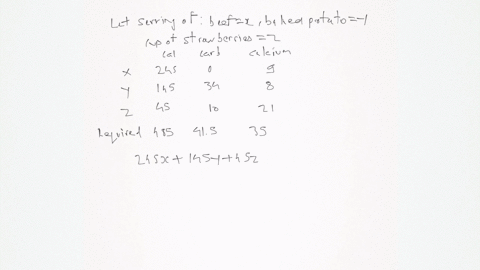 Let serving of : beef=x, baked potato=y
cup of strawberries=z
cal carb calcium
x 245 0 9
y 145 34 8
z 45 10 21
Required 485 41.5 35
245x + 145y + 45z